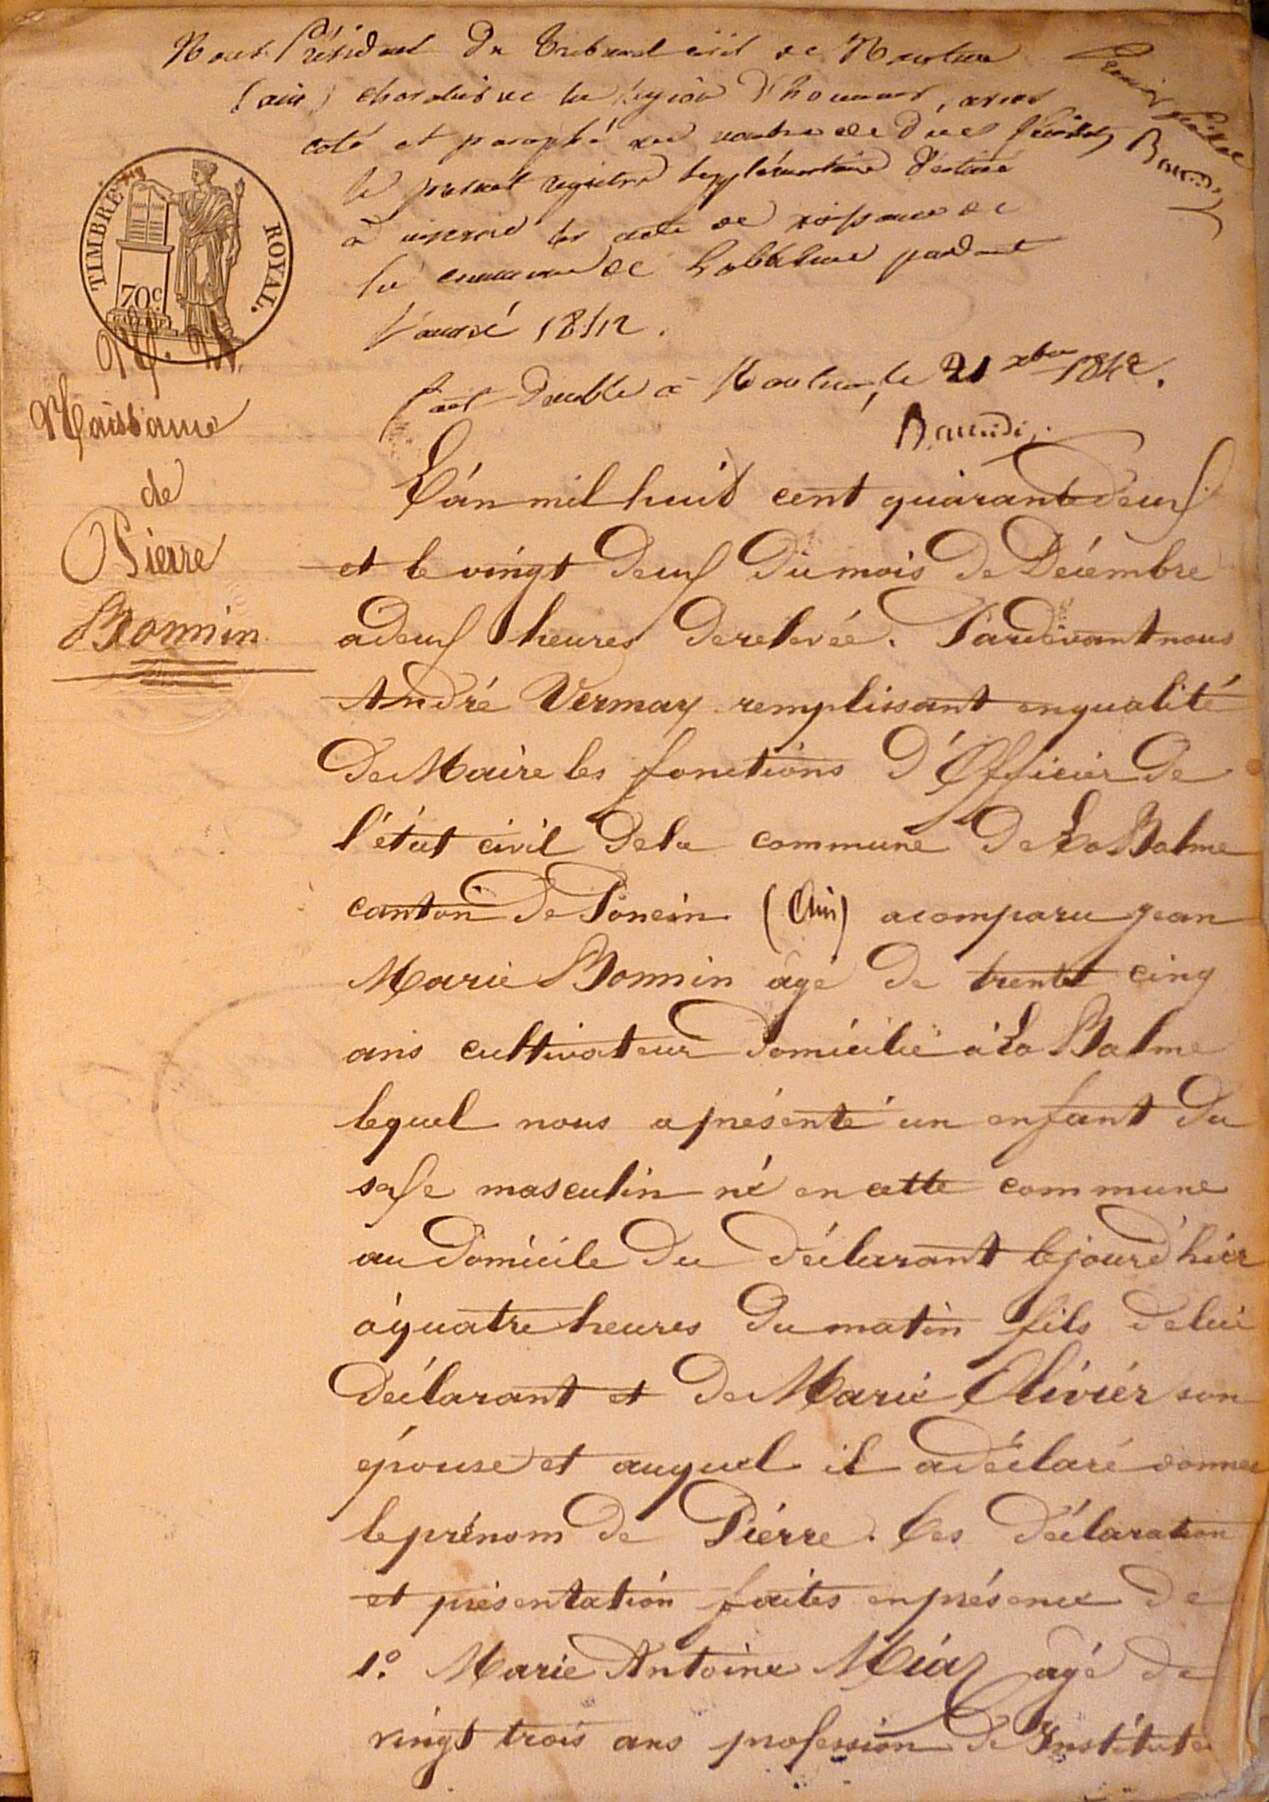 Nous Président du Tribunal civil de Nantua
(ain) chevalier de la légion d'honneur, avons
coté et paraphé au nombre de deux feuillets
le présent registre supplémentaire destiné
à inscrire les actes de naissance de
la commune de Labalme pendant
l'année 1842.
fait double à Nantua, le 21 xbre 1842.
Premier feuillet
TIMBRE ROYAL.
70c
Naissance
de
Pierre
Bonnin
L'an mil huit cent quarante deux
et le vingt deux du mois de Décembre
a deux heures de relevée. Pardevant nous
André Vermay remplissant en qualité
de Maire les fonctions d'Officier de
l'état civil de la commune de La Balme
canton de Poncin (Ain) a comparu Jean
Marie Bonnin âgé de trente cinq
ans cultivateur domicilié à La Balme
lequel nous a présenté un enfant du
sexe masculin né en cette commune
au domicile du déclarant le jour d'hier
à quatre heures du matin fils de lui
déclarant et de Marie Olivier son
épouse et auquel il a déclaré donner
le prénom de Pierre. Ces déclaration
et présentation faites en présence de
1.º Marie Antoine âgé de
vingt trois ans profession d'Institute